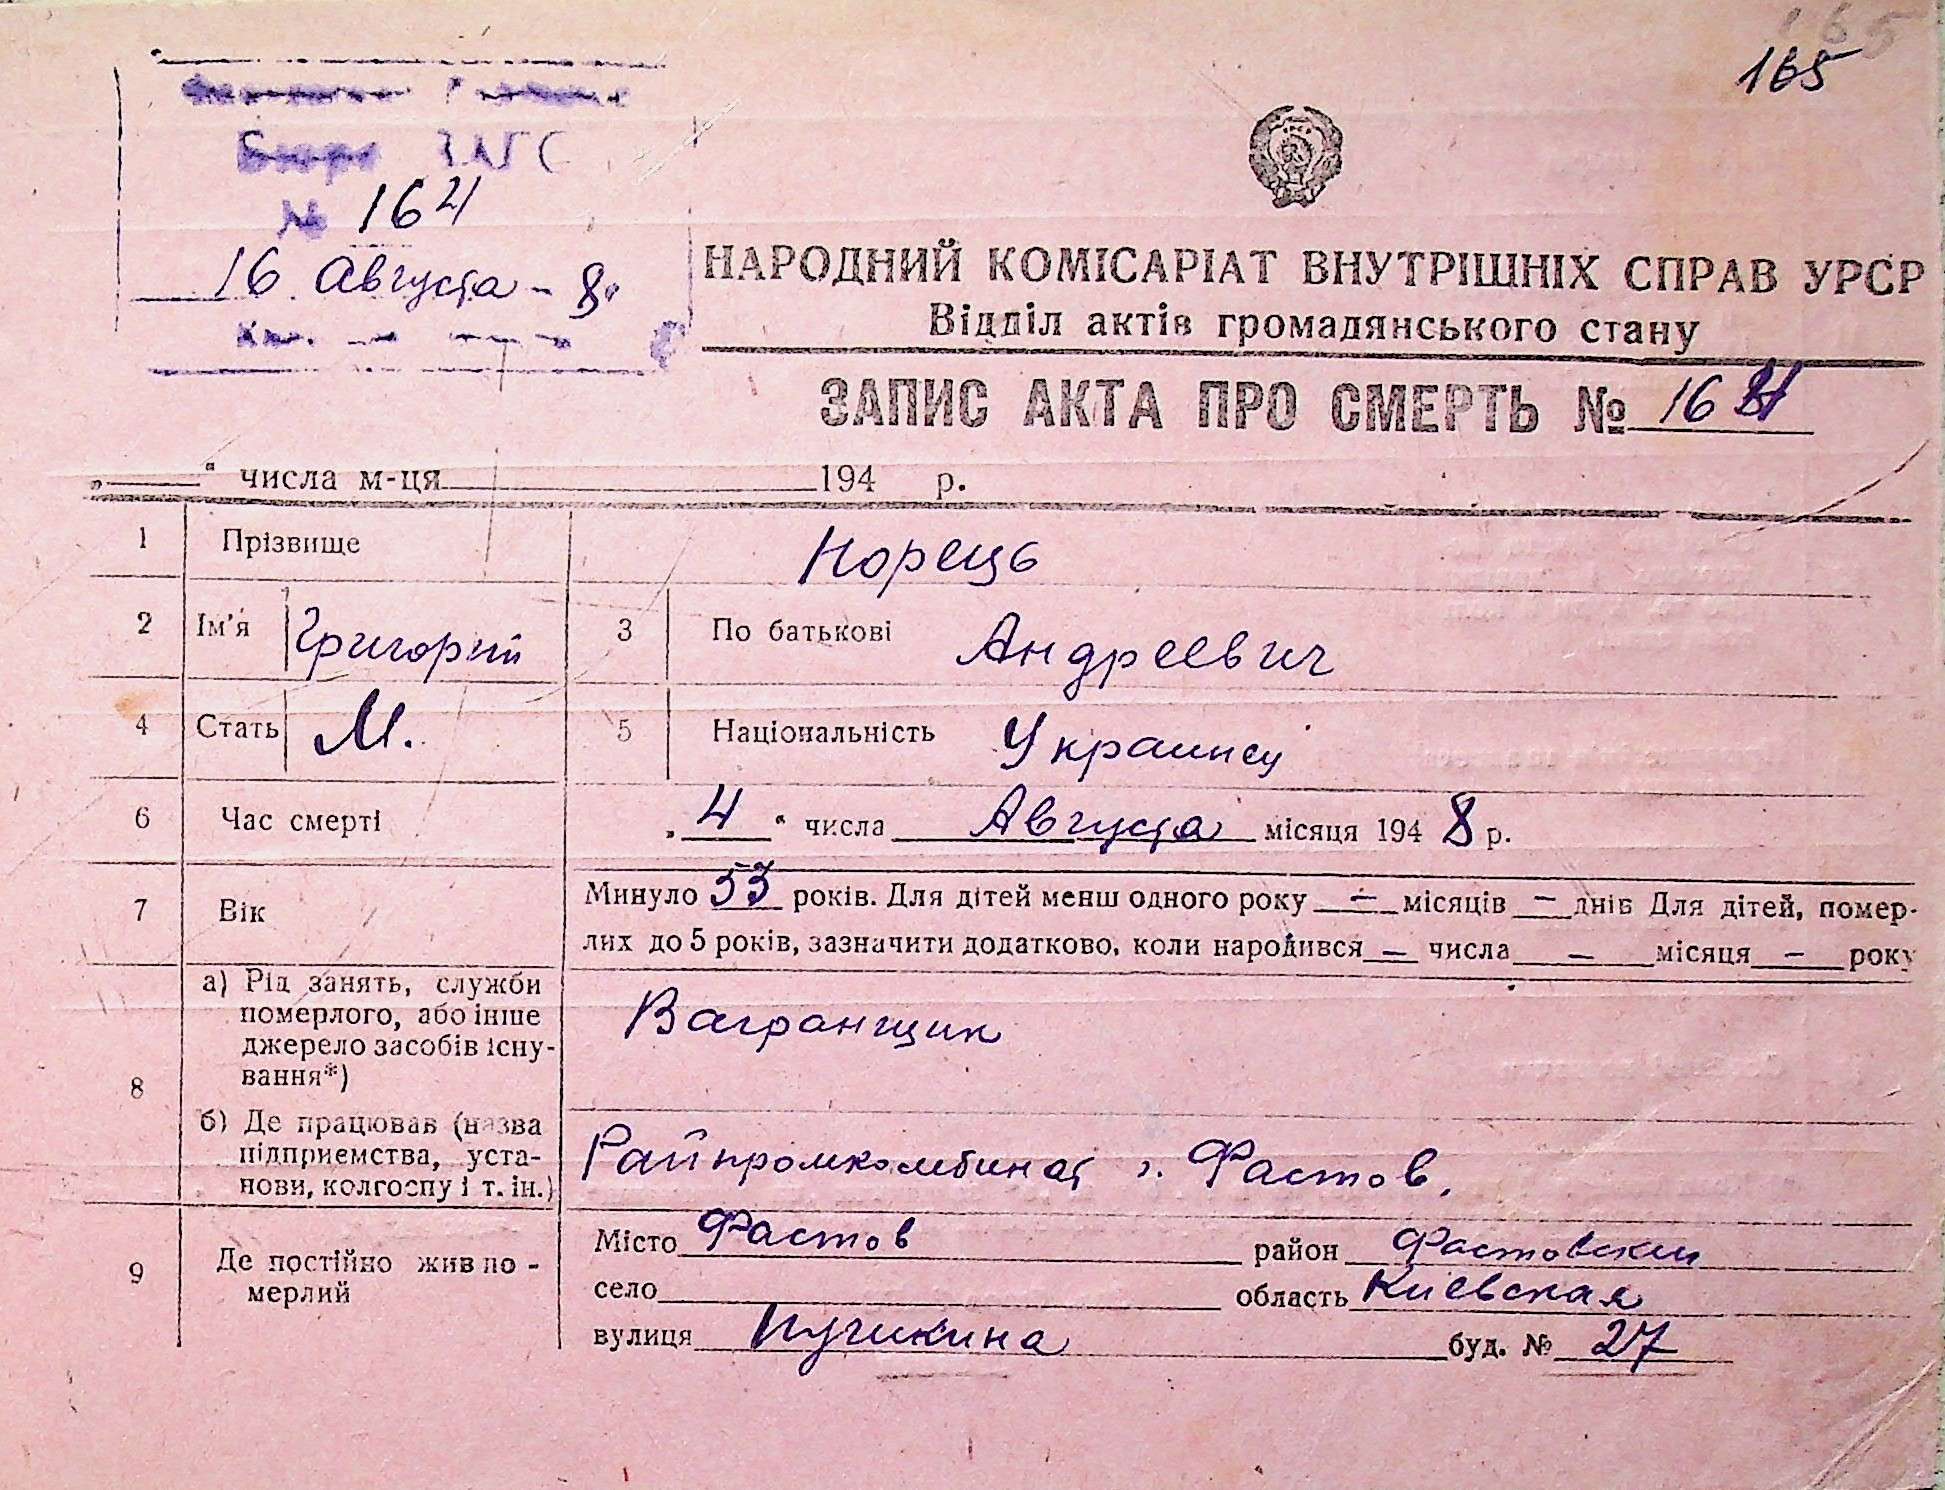 165
Бюро ЗАГС
№ 164
16 Августа - 8
НАРОДНИЙ КОМІСАРІАТ ВНУТРІШНІХ СПРАВ УРСР
Відділ актів громадянського стану
ЗАПИС АКТА ПРО СМЕРТЬ № 164
„ “ числа м-ця 194 р.
1 Прізвище Норець
2 Ім'я Григорий 3 По батькові Андреевич
4 Стать М. 5 Національність Украинец
6 Час смерті „4“ числа Августа місяця 1948 р.
7 Вік Минуло 53 років. Для дітей менш одного року – місяців – днів Для дітей, помер-
лих до 5 років, зазначити додатково, коли народився – числа – місяця – року
8 а) Рід занять, служби
померлого, або інше
джерело засобів існу-
вання*)
Вагранщик
б) Де працював (назва
підприємства, уста-
нови, колгоспу і т. ін.)
Райпромкомбинат г. Фастов.
9 Де постійно жив по-
мерлий
Місто Фастов район Фастовский
село область Киевская
вулиця Пушкина буд. № 27